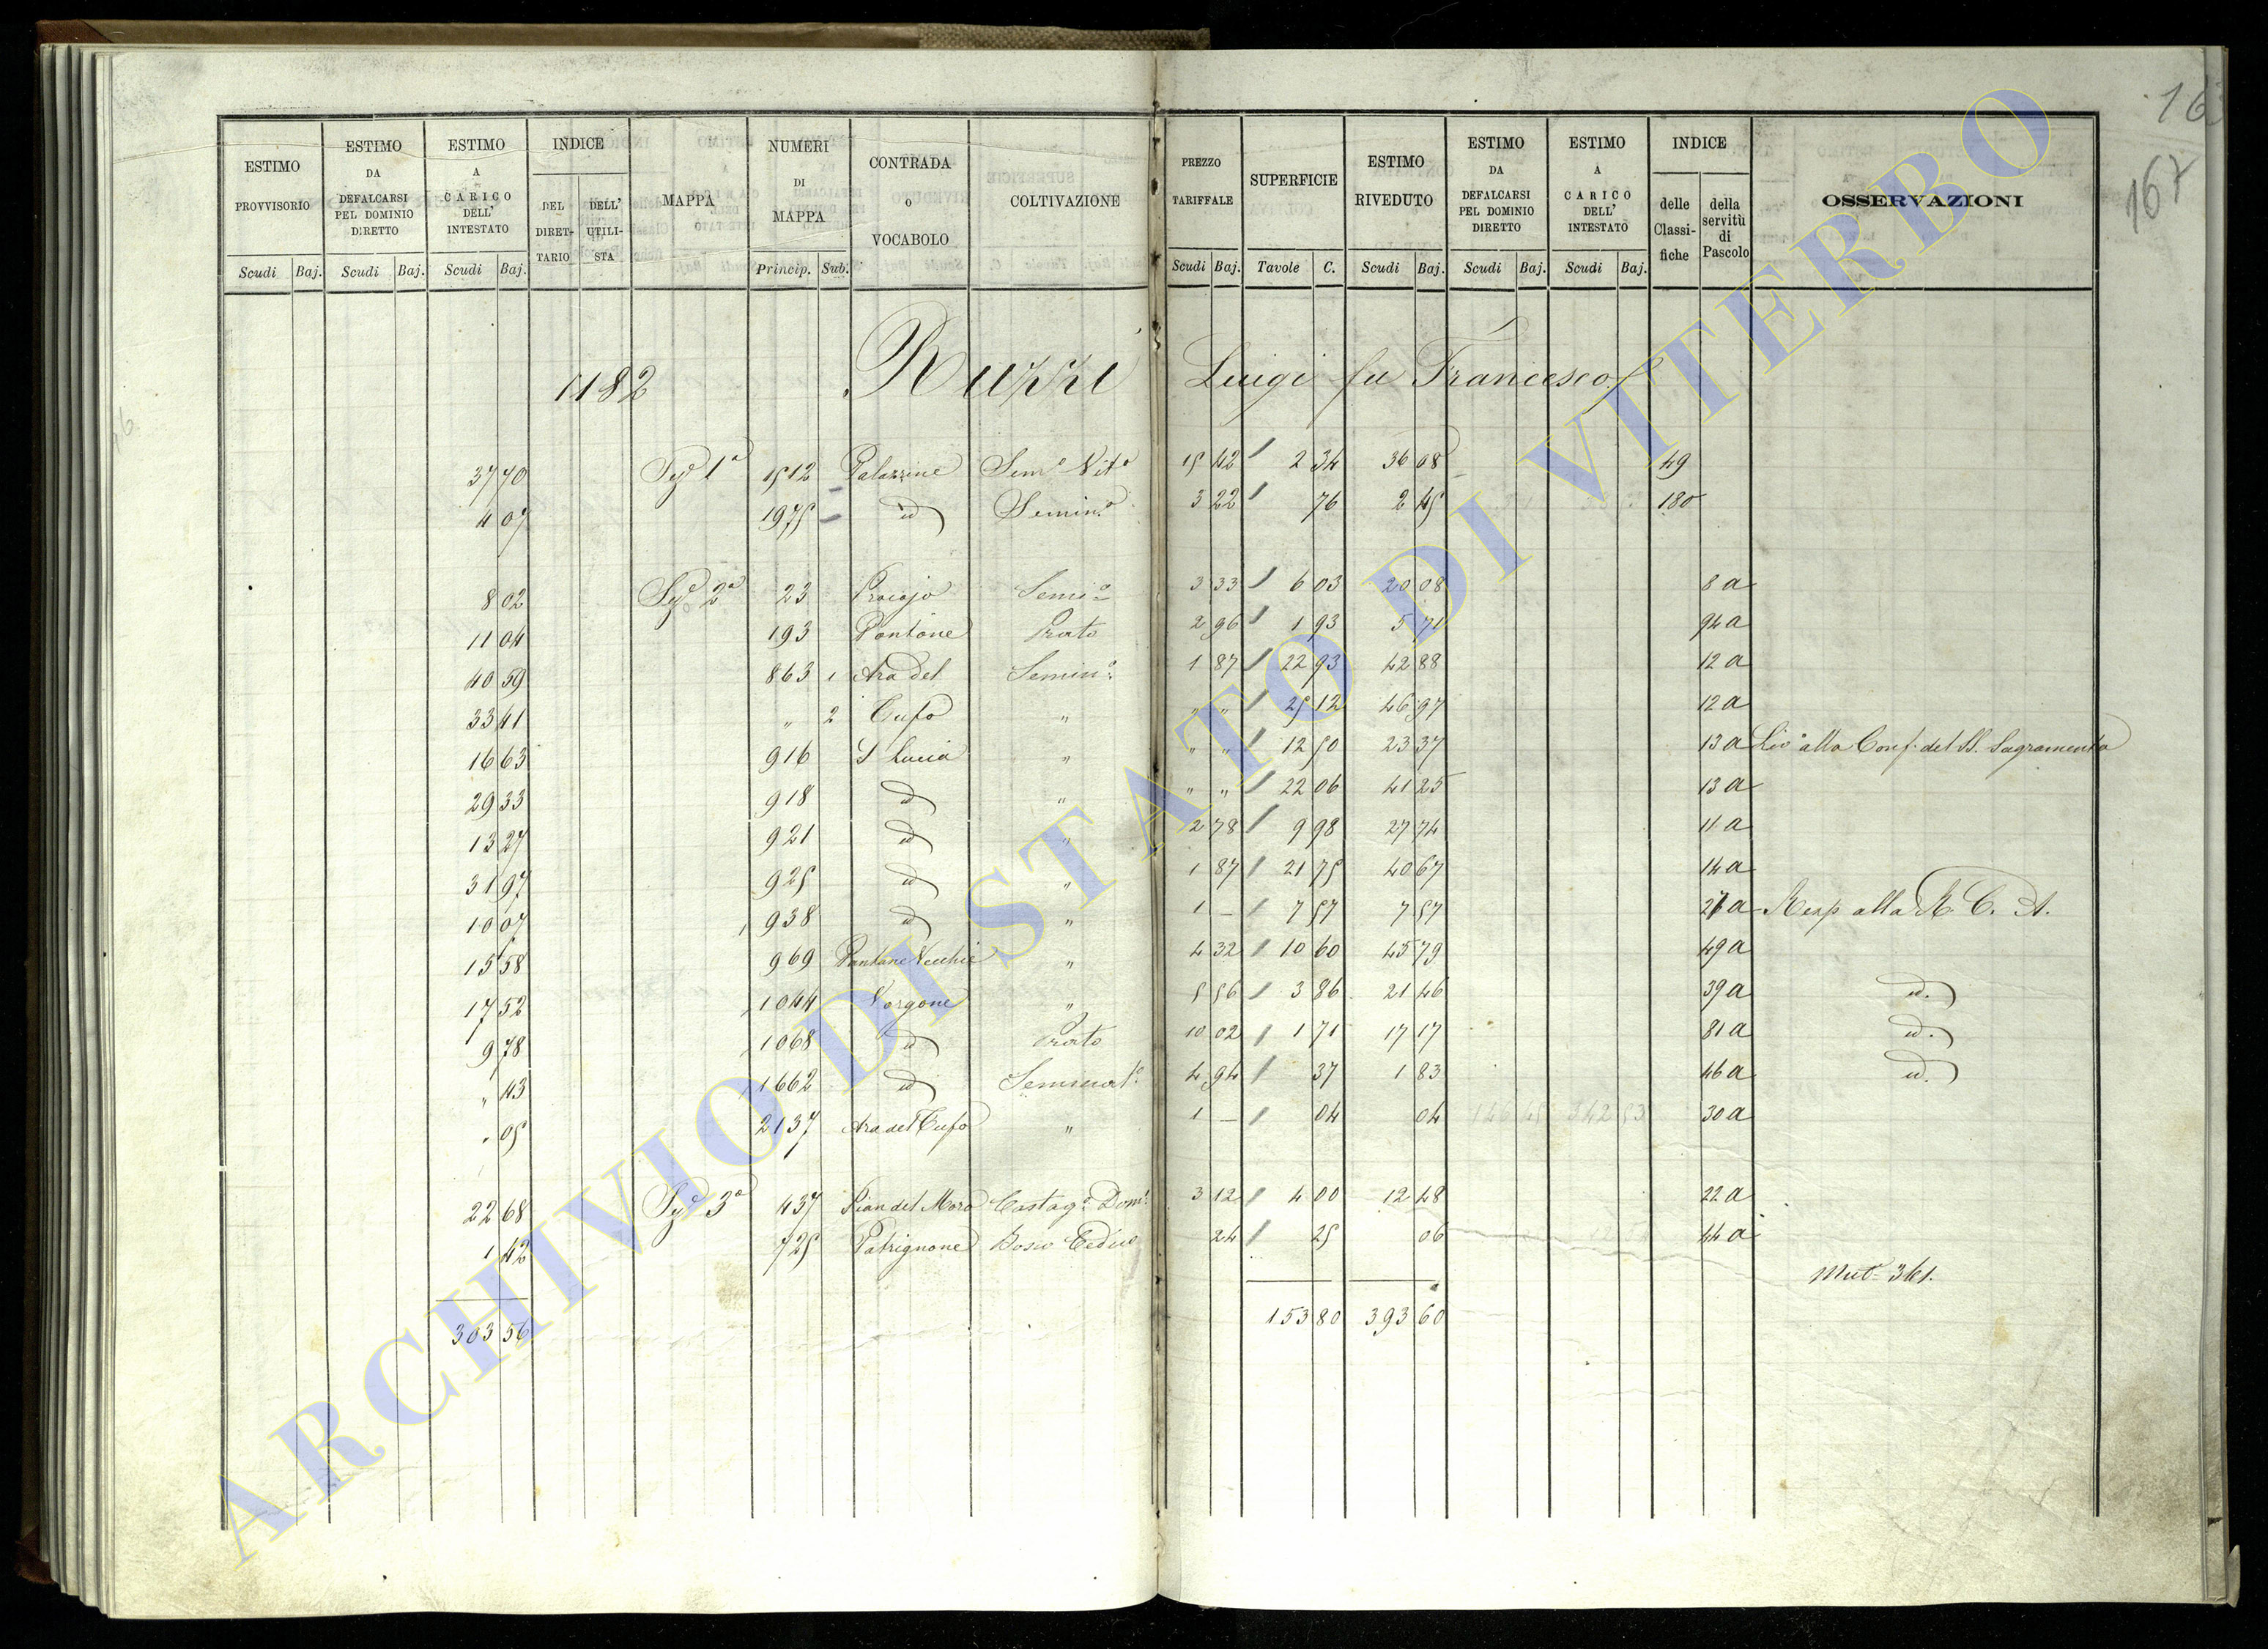 163
167
ESTIMO PROVVISORIO | ESTIMO DA DEFALCARSI PEL DOMINIO DIRETTO | ESTIMO A CARICO DELL' INTESTATO | INDICE DEL DIRETTARIO | DELL' UTILISTA | MAPPA | NUMERI DI MAPPA | CONTRADA O VOCABOLO | COLTIVAZIONE | PREZZO TARIFFALE | SUPERFICIE | ESTIMO RIVEDUTO | ESTIMO DA DEFALCARSI PEL DOMINIO DIRETTO | ESTIMO A CARICO DELL' INTESTATO | INDICE delle Classifiche | della servitù di Pascolo | OSSERVAZIONI
Scudi Baj. | Scudi Baj. | Scudi Baj. | Princip. Sub. | Scudi Baj. | Tavole C. | Scudi Baj. | Scudi Baj. | Scudi Baj.
1182 Ruzzi Luigi fu Francesco
37 70 Sez.e 1a 1512 Palazzine Sem.o Vit.o 15 42 2 34 36 08 49
4 07 1975 id Semin.o 3 22 76 2 45 180
8 02 Sez.e 2a 23 Procojo Semi.o 3 33 6 03 20 08 8 a
11 04 193 Pantane Prato 2 96 1 93 5 71 94 a
40 59 863 1 Ara del Semin.o 1 87 22 93 42 88 12 a
33 41 " 2 Tufo " " " 25 12 46 97 12 a
16 63 916 S Lucia " " " 12 50 23 37 13 a Liv.o alla Conf. del SS. Sagramento
29 33 918 id " " " 22 06 41 25 13 a
13 27 921 id " 2 78 9 98 27 74 11 a
31 97 925 id " 1 87 21 75 40 67 14 a
10 07 938 id " 1 — 7 57 7 57 27 a Resp alla R. C. A.
15 58 969 Pantane Vecchie " 4 32 10 60 45 79 49 a
17 52 1044 Vorgone " 5 56 3 86 21 46 39 a id.
9 78 1068 id Prato 10 02 1 71 17 17 81 a id.
" 43 1662 id Seminat.o 4 94 37 1 83 46 a id.
" 05 2137 Ara del Tufo " 1 — 04 04 146 45 342 53 30 a
22 68 Sez.e 3a 437 Pian del Moro Castag.o Dom.o 3 12 4 00 12 48 22 a
1 42 725 Patrignone Bosco Ceduo 24 25 06 44 a
Mut.e 361.
303 56 153 80 393 60
ARCHIVIO DI STATO DI VITERBO